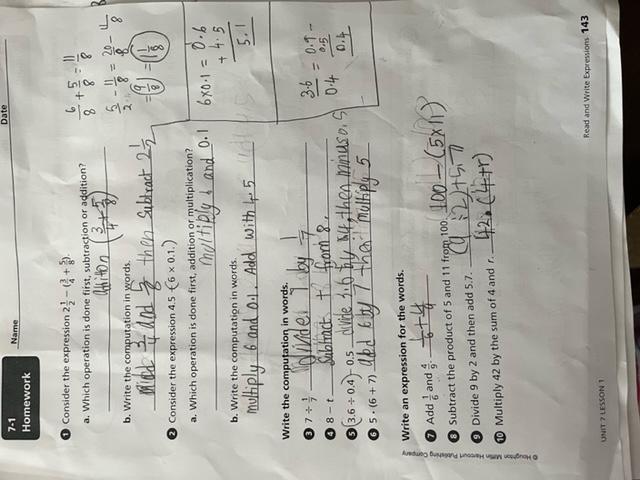 Name
Date
7-1
Homework
1 Consider the expression 2 1/2 − (3/4 + 5/8).
a. Which operation is done first, subtraction or addition?
(3/4 + 5/8)
b. Write the computation in words.
then Subtract 2 1/2
6/8 + 5/8 = 11/8
5/2 - 11/8 = 20/8 - 11/8
= 9/8 = 1 1/8
2 Consider the expression 4.5 + (6 × 0.1.)
a. Which operation is done first, addition or multiplication?
multiply 6 and 0.1
b. Write the computation in words.
multiply 6 and 0.1. Add with 4.5
6x0.1 = 0.6
+ 4.5
5.1
Write the computation in words.
3 7 ÷ 1/7 7 by 1/7
4 8 − t Subtract t from 8.
5 (3.6 ÷ 0.4) − 0.5 divide 3.6 by 0.4 then minus 0.5
6 5 · (6 + 7) add 6 by 7 multiply 5
3.6
0.4
0.5
0.4
Write an expression for the words.
7 Add 1/6 and 4/9.
8 Subtract the product of 5 and 11 from 100. 100 - (5x11)
9 Divide 9 by 2 and then add 5.7. (9 ÷ 2) + 5.7
10 Multiply 42 by the sum of 4 and r. 42 · (4+r)
© Houghton Mifflin Harcourt Publishing Company
UNIT 7 LESSON 1
Read and Write Expressions 143